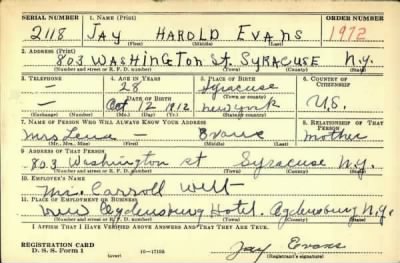 SERIAL NUMBER 1. NAME (Print) ORDER NUMBER
2118 JAY HAROLD EVANS 1972
(First) (Middle) (Last)
2. ADDRESS (Print)
803 WASHINGTON St. SYRACUSE N.Y.
(Number and street or R. F. D. number) (Town) (County) (State)
3. TELEPHONE 4. AGE IN YEARS 5. PLACE OF BIRTH 6. COUNTRY OF CITIZENSHIP
— 28 Syracuse
DATE OF BIRTH (Town or county)
— Oct 12 1912 New York U.S.
(Exchange) (No.) (Mo.) (Day) (Yr.) (State or country)
7. NAME OF PERSON WHO WILL ALWAYS KNOW YOUR ADDRESS 8. RELATIONSHIP OF THAT PERSON
Mrs Lena — Evans mother
(Mr., Mrs., Miss) (First) (Middle) (Last)
9. ADDRESS OF THAT PERSON
803 Washington st Syracuse N.Y.
(Number and street or R. F. D. number) (Town) (County) (State)
10. EMPLOYER'S NAME
Mr. Carroll Witt
11. PLACE OF EMPLOYMENT OR BUSINESS
New Ogdensburg Hotel. Ogdensburg N.Y.
(Number and street or R. F. D. number) (Town) (County) (State)
I AFFIRM THAT I HAVE VERIFIED ABOVE ANSWERS AND THAT THEY ARE TRUE.
REGISTRATION CARD
D. S. S. Form 1 (over) Jay Evans
(Registrant's signature)